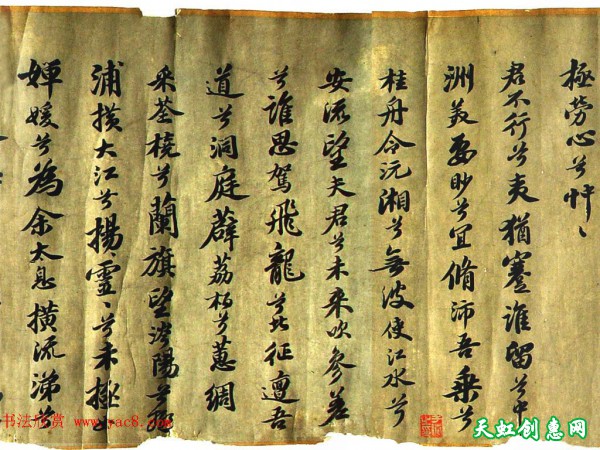 極勞心兮忡〻
君不行兮夷猶蹇誰留兮中
洲美要眇兮宜脩沛吾乘兮
桂舟令沅湘兮無波使江水兮
安流望夫君兮未來吹參差
兮誰思駕飛龍兮北征邅吾
道兮洞庭薜荔柏兮蕙綢
采荃橈兮蘭旗望涔陽兮極
浦橫大江兮揚靈〻兮未極
嬋媛兮為余太息橫流涕兮
书法欣赏 www.yac8.com
天虹创惠网